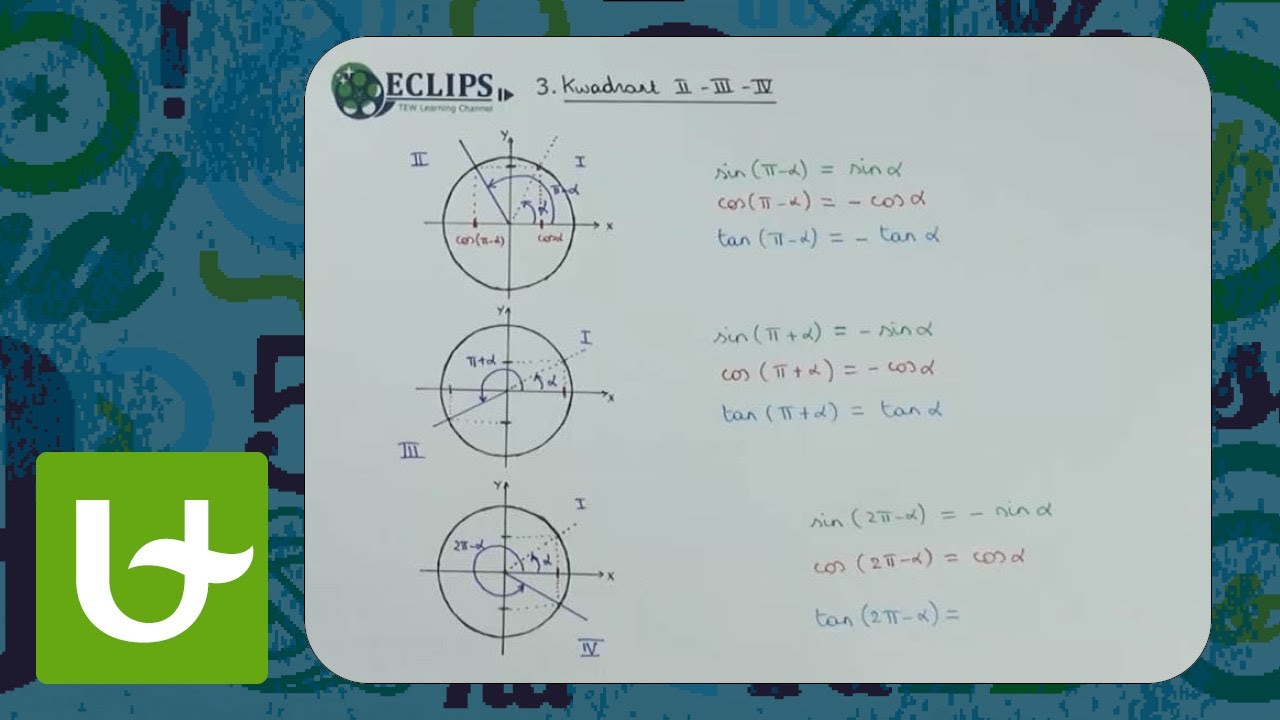 ECLIPS
TEW Learning Channel
3. Kwadrant II - III - IV
Y
II
I
π-α
α
x
cos(π-α)
cosα
sin(π-α) = sinα
cos(π-α) = - cosα
tan(π-α) = - tanα
Y
I
π+α
α
x
III
sin(π+α) = - sinα
cos(π+α) = - cosα
tan(π+α) = tanα
Y
I
2π-α
α
x
IV
sin(2π-α) = - sinα
cos(2π-α) = cosα
tan(2π-α) =